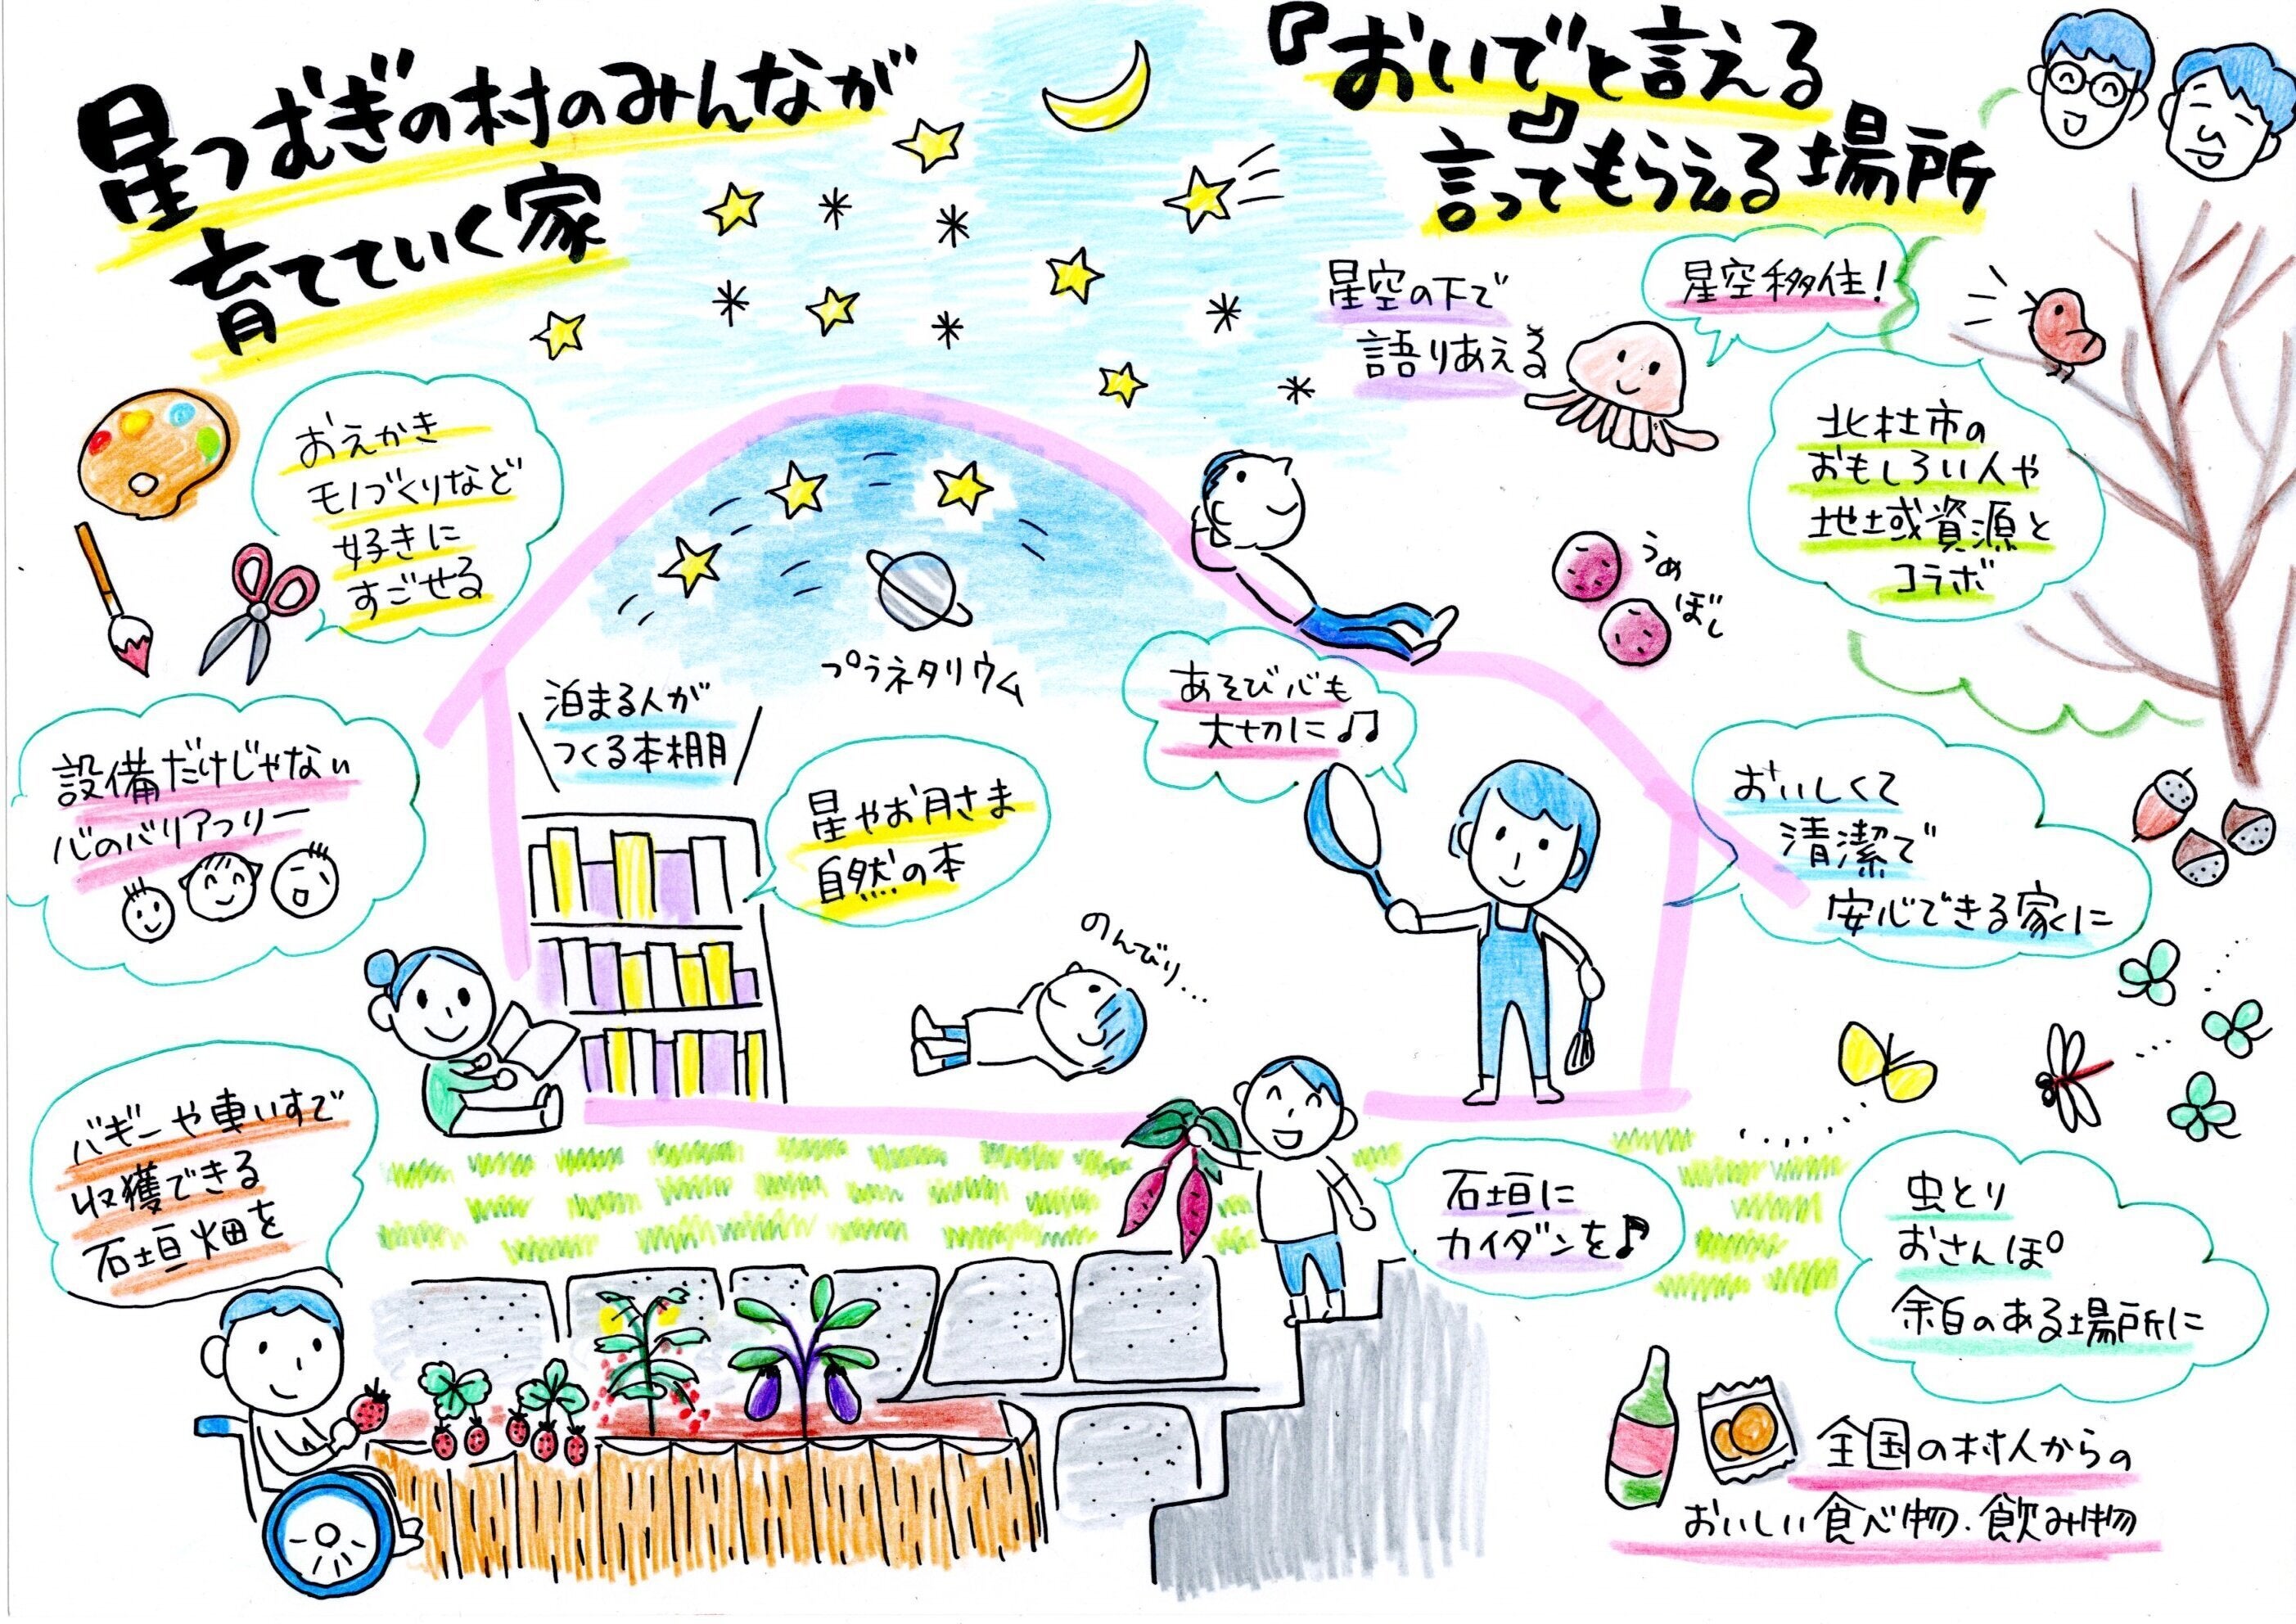 星つむぎの村のみんなが
育てていく家
『おいで』と言える
言ってもらえる場所
星空の下で
語りあえる
星空移住！
北杜市の
おもしろい人や
地域資源と
コラボ
おえかき
モノづくりなど
好きに
すごせる
うめ
ぼし
プラネタリウム
泊まる人が
つくる本棚
あそび心も
大切に♪♪
設備だけじゃない
心のバリアフリー
星やお月さま
自然の本
おいしくて
清潔で
安心できる家に
のんびり...
バギーや車いすで
収獲できる
石垣畑を
石垣に
カイダンを♪
虫とり
おさんぽ
余白のある場所に
全国の村人からの
おいしい食べ物・飲み物